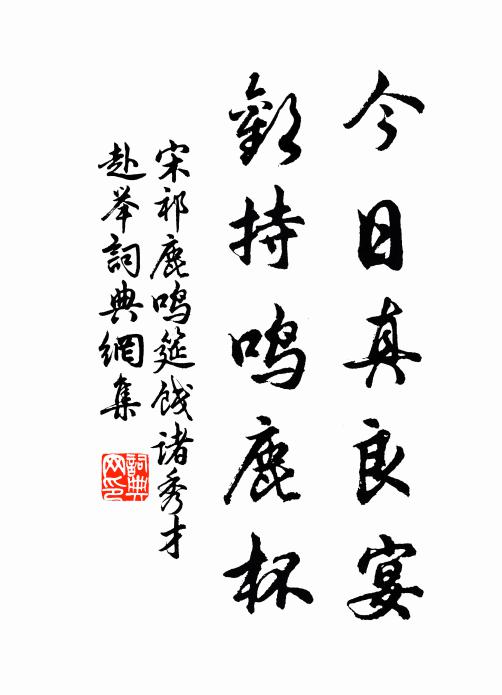 今日真良宴
歡持鳴鹿杯
宋祁鹿鳴筵餞諸秀才
赴举詞典網集
詞典网印